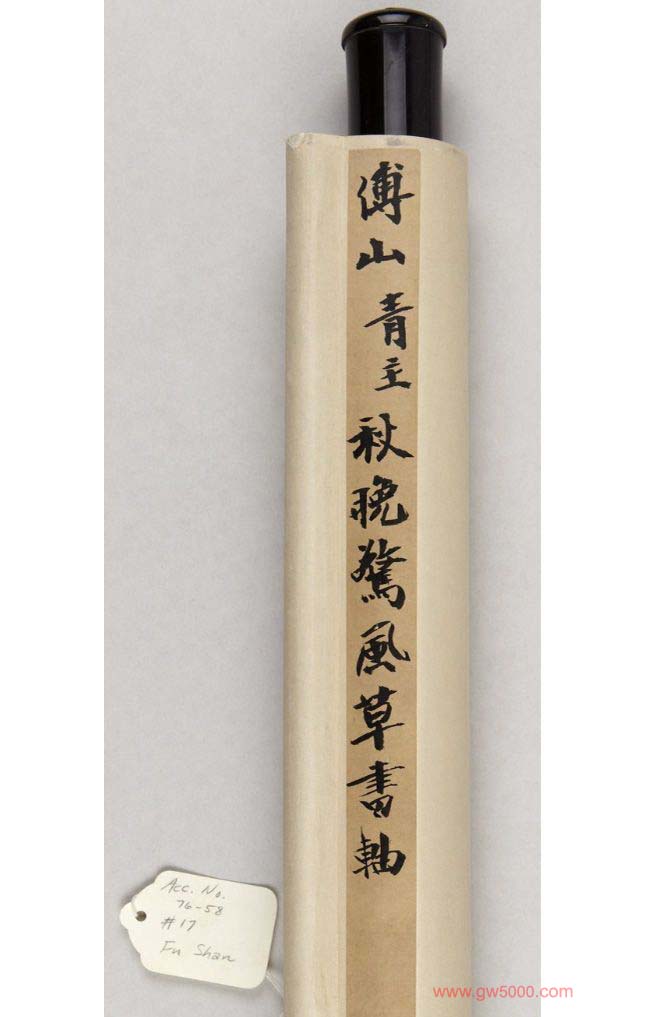 傅山青主秋晚驚風草書軸
Acc. No.
76-58
#17
Fu Shan
www.gw5000.com